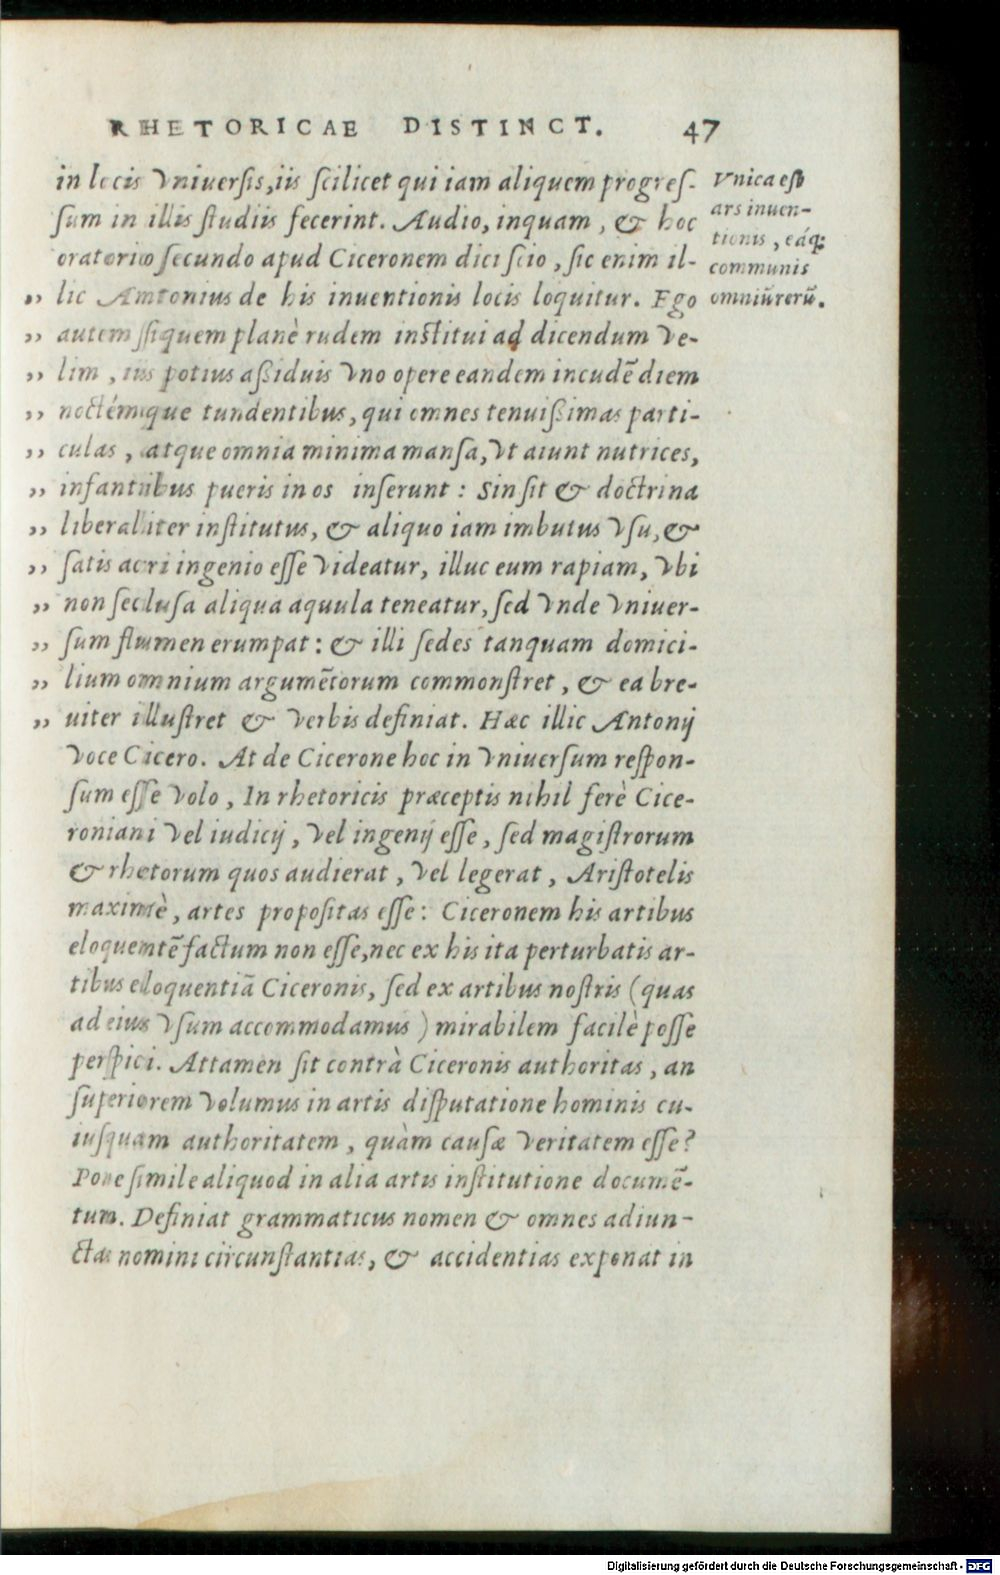 RHETORICAE DISTINCT. 47
in locis vniuersis, iis scilicet qui iam aliquem progres-
sum in illis studiis fecerint. Audio, inquam, & hoc
oratorio secundo apud Ciceronem dici scio, sic enim il-
,, lic Antonius de his inuentionis locis loquitur. Ego
,, autem si quem planè rudem institui ad dicendum ve-
,, lim, iis potius aßiduis vno opere eandem incudē diem
,, noctémque tundentibus, qui omnes tenuißimas parti-
,, culas, atque omnia minima mansa, vt aiunt nutrices,
,, infantibus pueris in os inserunt: Sin sit & doctrina
,, liberaliter institutus, & aliquo iam imbutus vsu, &
,, satis acri ingenio esse videatur, illuc eum rapiam, vbi
,, non seclusa aliqua aquula teneatur, sed vnde vniuer-
,, sum flumen erumpat: & illi sedes tanquam domici-
,, lium omnium argumētorum commonstret, & ea bre-
,, uiter illustret & verbis definiat. Hæc illic Antonij
voce Cicero. At de Cicerone hoc in vniuersum respon-
sum esse volo, In rhetoricis præceptis nihil ferè Cice-
roniani vel iudicij, vel ingenij esse, sed magistrorum
& rhetorum quos audierat, vel legerat, Aristotelis
maximè, artes propositas esse: Ciceronem his artibus
eloquentē factum non esse, nec ex his ita perturbatis ar-
tibus eloquentiā Ciceronis, sed ex artibus nostris (quas
ad eius vsum accommodamus) mirabilem facilè posse
perspici. Attamen sit contrà Ciceronis authoritas, an
superiorem volumus in artis disputatione hominis cu-
iusquam authoritatem, quàm causæ veritatem esse?
Pone simile aliquod in alia artis institutione documē-
tum. Definiat grammaticus nomen & omnes adiun-
ctas nomini circunstantias, & accidentias exponat in
Vnica est
ars inuen-
tionis, eáq;
communis
omniū rerū.
Digitalisierung gefördert durch die Deutsche Forschungsgemeinschaft - DFG